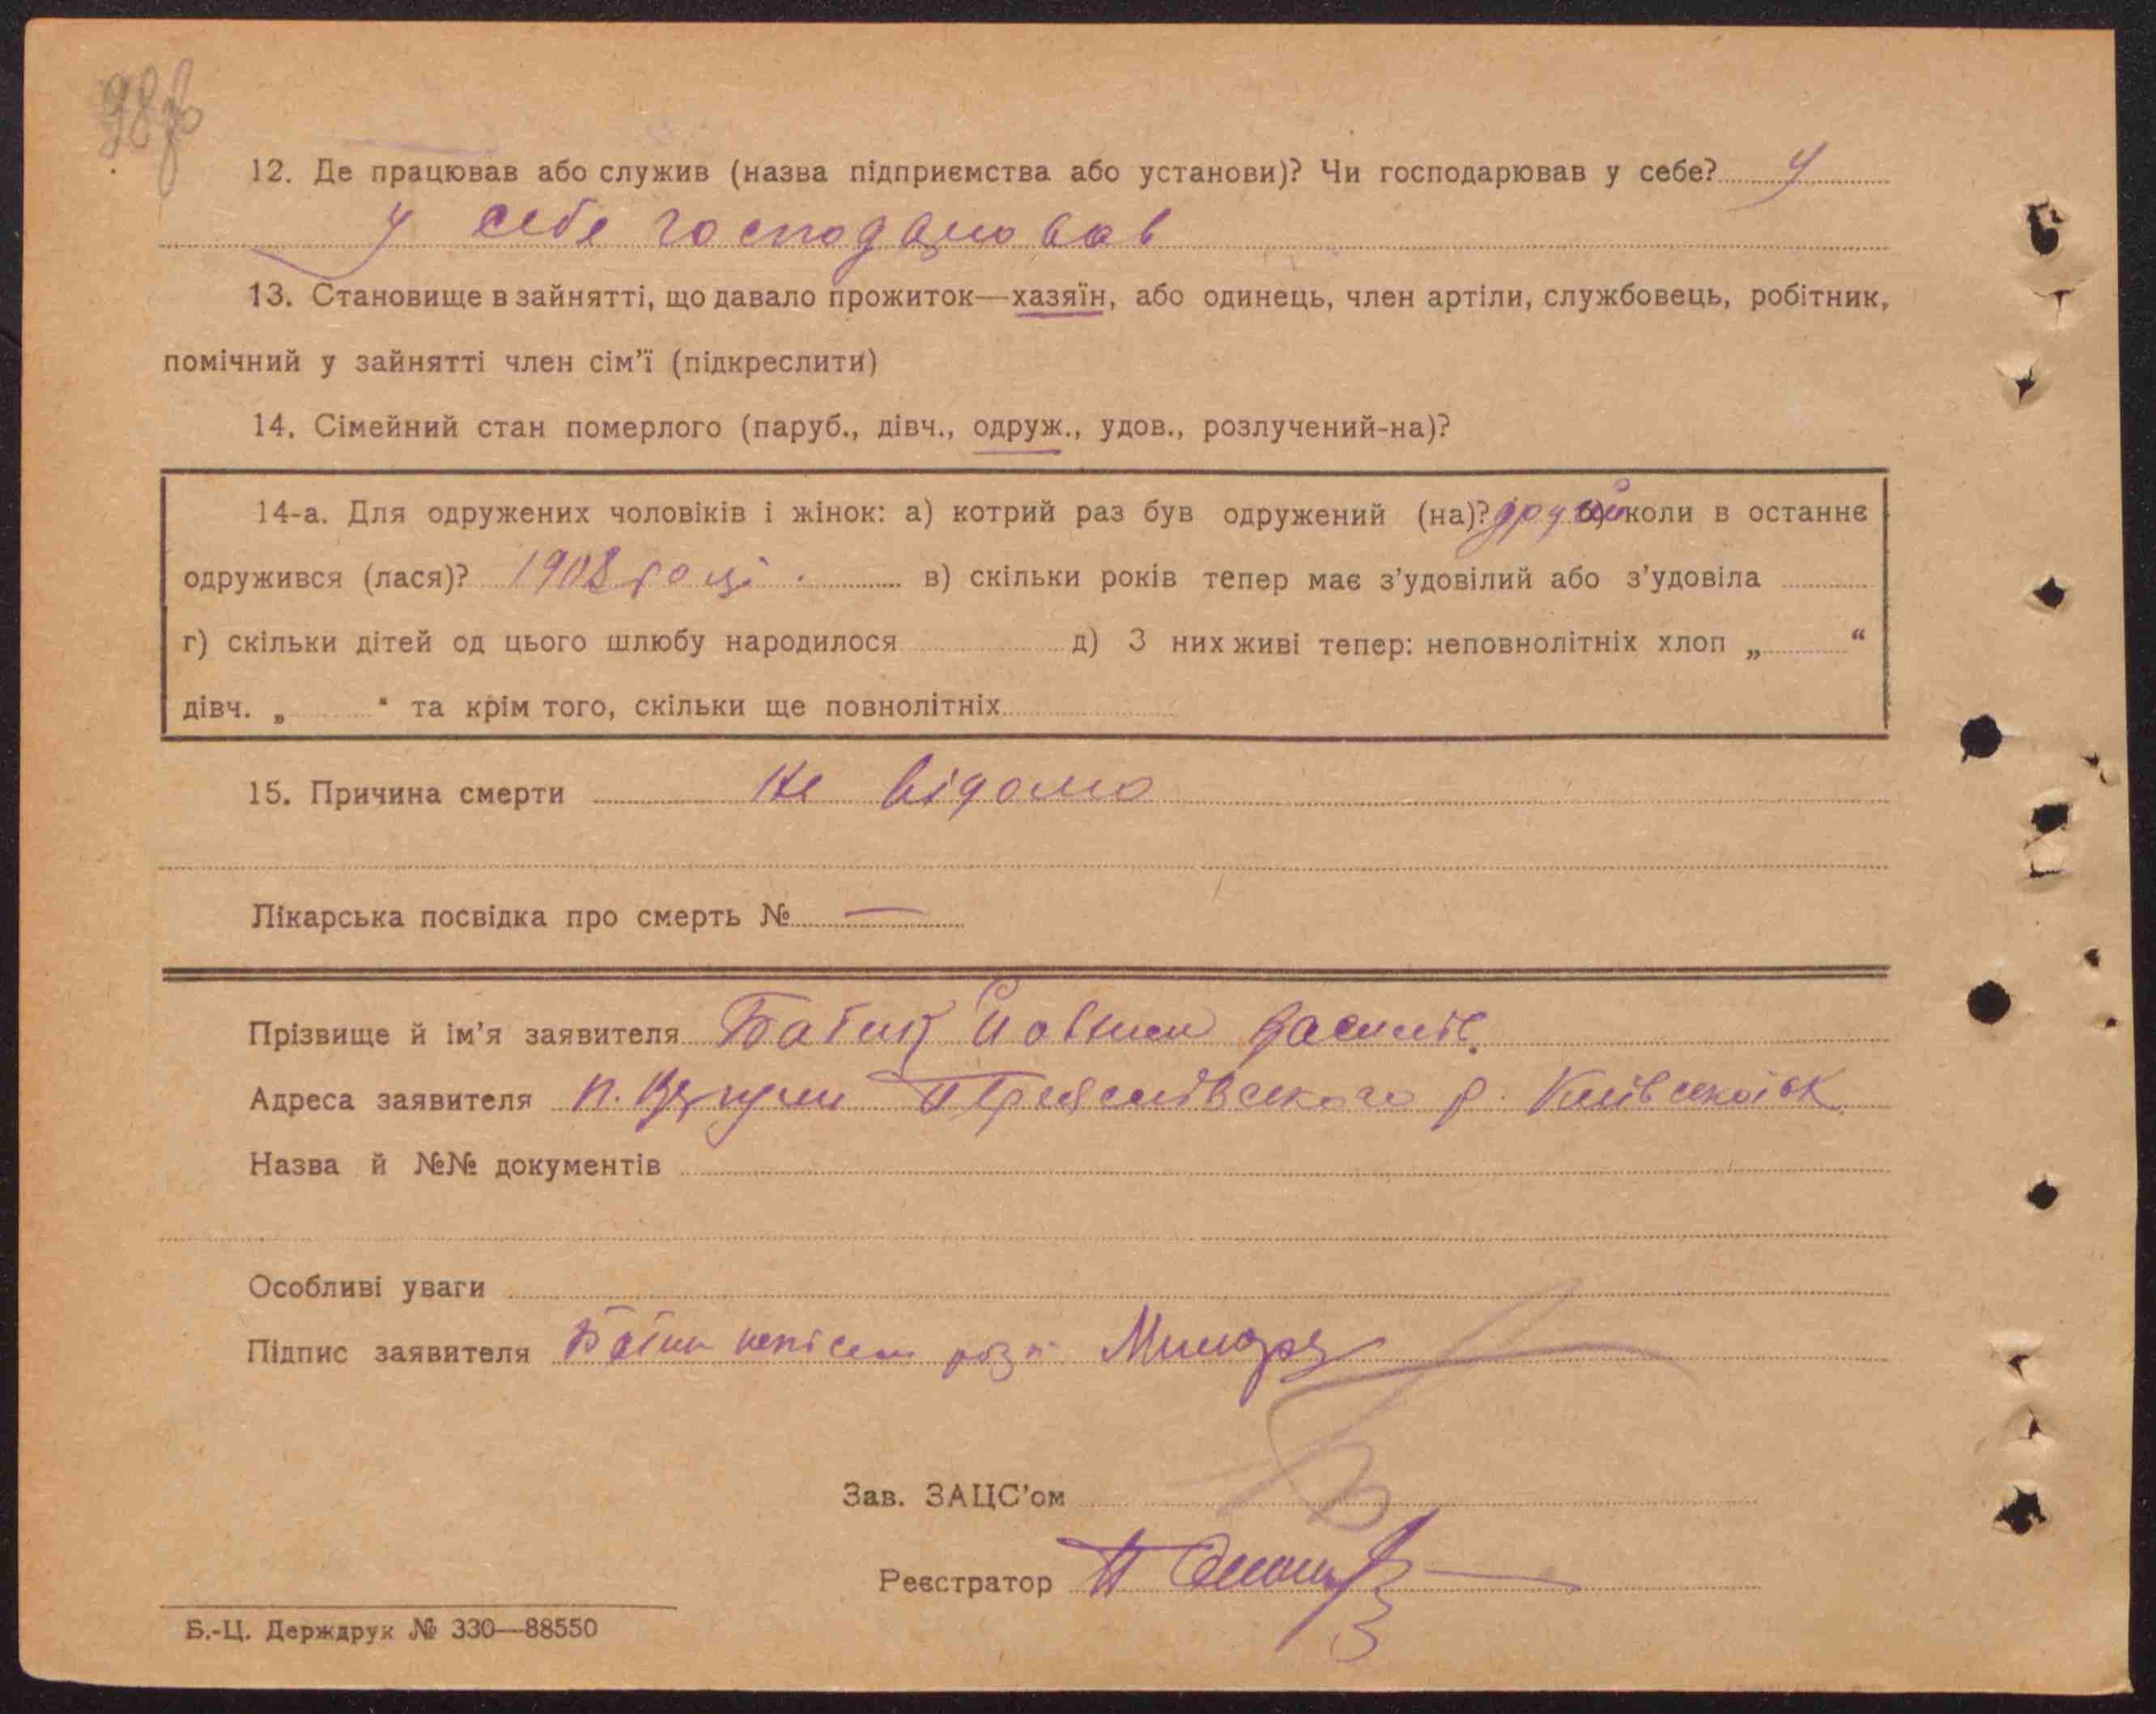 98
12. Де працював або служив (назва підприємства або установи)? Чи господарював у себе? У
У себе господарював
13. Становище в зайнятті, що давало прожиток—хазяїн, або одинець, член артіли, службовець, робітник,
помічний у зайнятті член сім’ї (підкреслити)
14. Сімейний стан померлого (паруб., дівч., одруж., удов., розлучений-на)?
14-а. Для одружених чоловіків і жінок: а) котрий раз був одружений (на)? другий б) коли в останнє
одружився (лася)? 1908 році. в) скільки років тепер має з’удовілий або з’удовіла
г) скільки дітей од цього шлюбу народилося д) З них живі тепер: неповнолітніх хлоп „ “
дівч. „ “ та крім того, скільки ще повнолітніх
15. Причина смерти Не відомо
Лікарська посвідка про смерть № —
Прізвище й ім’я заявителя
Адреса заявителя Переяслівського р. Київської
Назва й №№ документів
Особливі уваги
Підпис заявителя
Зав. ЗАЦС’ом
Реєстратор
Б.-Ц. Держдрук № 330—88550